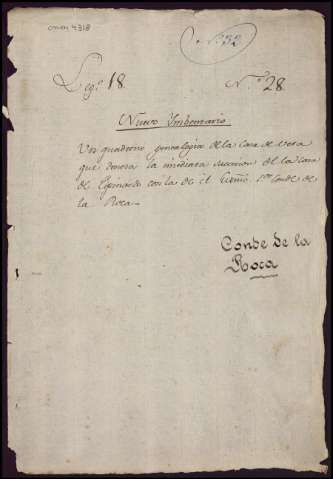 onov 4318
N.º 32
Leg.º 18.
N.º 28
Nuevo Imbentario
Un quaderno genealogico de la Casa de Vera
que denota la imediata succesion de la casa
de Espinardo con la de el Exmô. Sr. Conde de
la Roca.
Conde de la
Roca